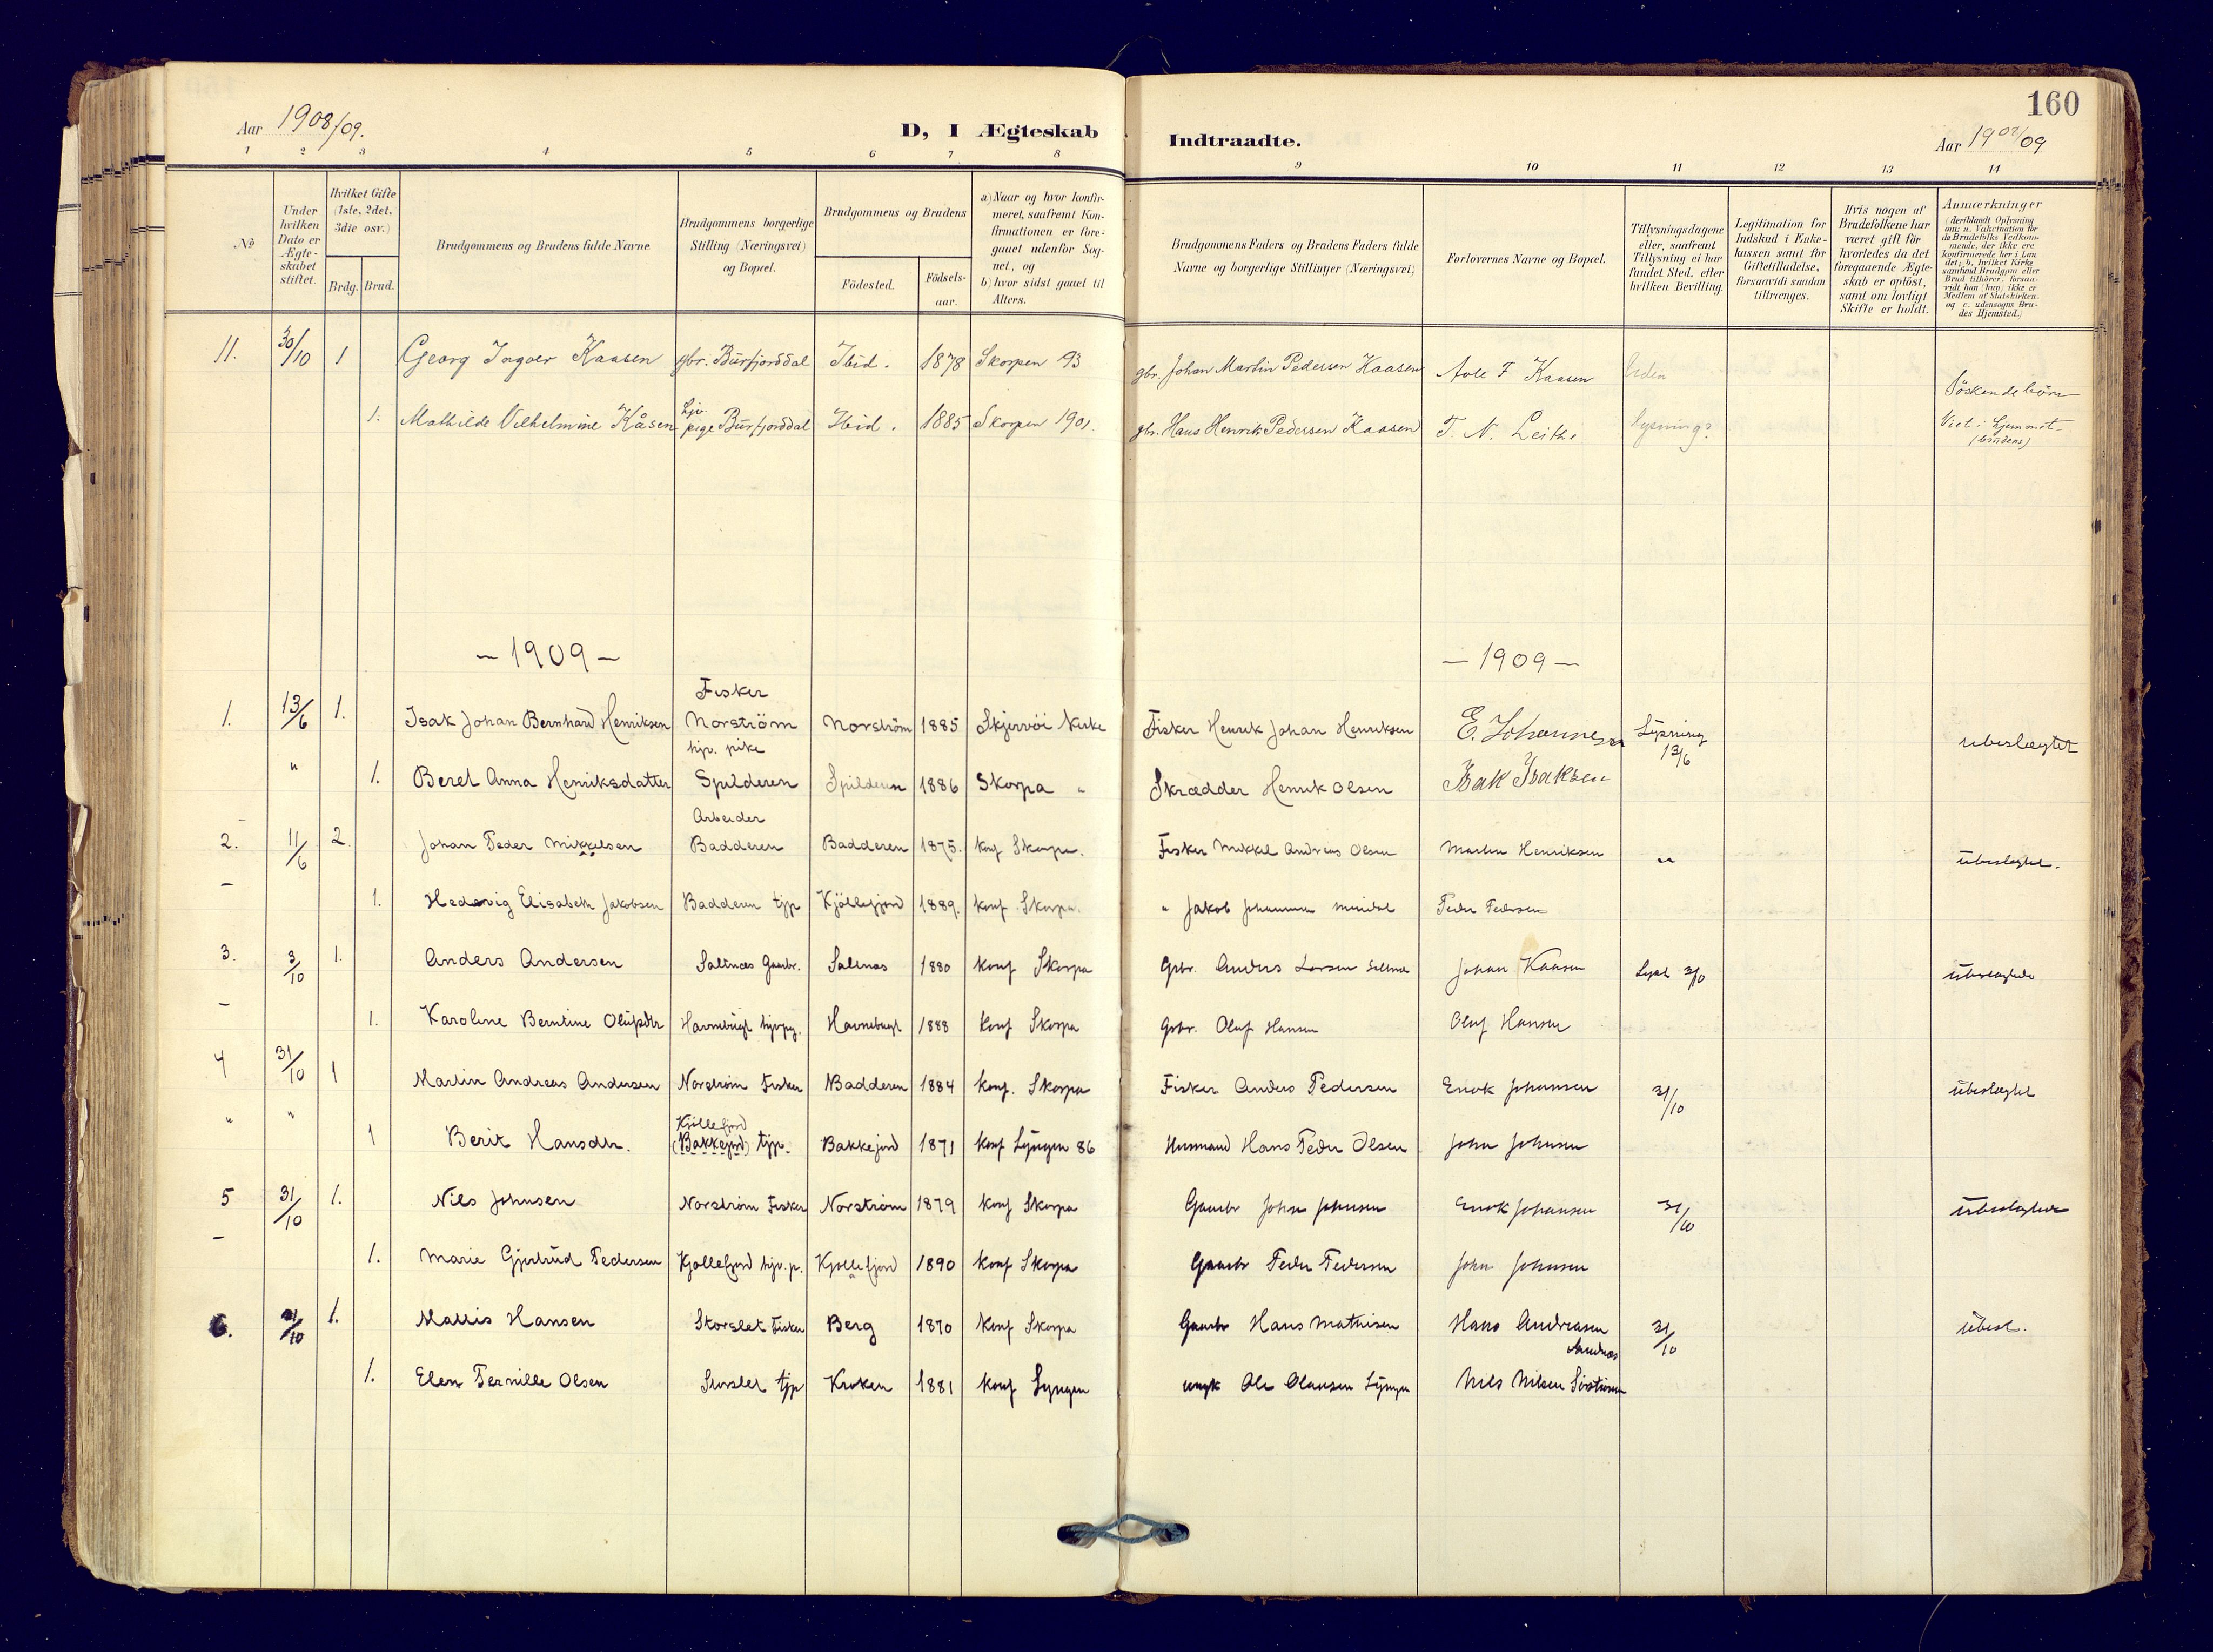 160
Aar 1908/09.
D, I Ægteskab
Indtraadte.
Aar 1908/09
1 2 3 4 5 6 7 8
9 10 11 12 13 14
№
Under hvilken Dato er Ægteskabet stiftet.
Hvilket Gifte (1ste, 2det, 3die osv.)
Brdg. Brud.
Brudgommens og Brudens fulde Navne
Brudgommens borgerlige Stilling (Næringsvei) og Bopæl.
Brudgommens og Brudens
Födested.
Födsels-aar.
a) Naar og hvor konfirmeret, saafremt Konfirmationen er foregaaet udenfor Sognet, og
b) hvor sidst gaaet til Alters.
Brudgommens Faders og Brudens Faders fulde Navne og borgerlige Stillinger (Næringsvei)
Forlovernes Navne og Bopæl.
Tillysningsdagene eller, saafremt Tillysning ei har fundet Sted, efter hvilken Bevilling.
Legitimation for Indskud i Enkekassen samt for Giftetilladelse, forsaavidt saadan tiltrænges.
Hvis nogen af Brudefolkene har været gift för hvorledes da det foregaaende Ægteskab er oplöst, samt om lovligt Skifte er holdt.
Anmærkninger (deriblandt Oplysning om: a. Vakcination for de Brudefolks Vedkommende, der ikke ere konfirmerede her i Landet; b. hvilket Kirkesamfund Brudgom eller Brud tilhörer, forsaavidt han (hun) ikke er Medlem af Statskirken, og c. udensogns Brudes Hjemsted.)
11. 30/10 1 Georg Ingvér Kaasen gbr. Burfjorddal Ibid. 1878 Skorpen 93 gbr. Johan Martin Pedersen Kaasen F Kaasen Uden Söskendebörn
1. Mathilde Vilhelmine Kåsen hjv. pige Burfjorddal Ibid. 1885 Skorpen 1901. gbr. Hans Henrik Pedersen Kaasen T. N. Leithe lysning? Viet i hjemmet (brudens)
- 1909 -
- 1909 -
1. 13/6 1. Isak Johan Bernhard Henriksen Fisker Norström Norström 1885 Skjervöi Kirke Fisker Henrik Johan Henriksen E. Johannesen Lysning 13/6 ubeslægtet
" 1. Beret Anna Henriksdatter hjv. pike Spilderen Spilderen 1886 Skorpa " Skrædder Henrik Olsen Isak Isaksen
2. 11/6 2 Johan Peder Mikkelsen Arbeider Badderen Badderen 1875. konf Skorpa. Fisker Mikkel Andreas Olsen Martin Henriksen " ubeslægtet.
- 1. Hedevig Elisabeth Jakobsen Badderen tjp Kjöllefjord 1889. konf. Skorpa. " Jakob Peder Pedersen
3. 3/10 1. Anders Andersen Saltnæs Gaarbr. Saltnæs 1880 konf Skorpa Grbr. Anders Larsen Saltnæs Johan Kaasen Lyst 3/10 ubeslægtede
- 1. Karoline Berntine Olufsdtr Havnebugt hjvpg. Havnebugt 1888 konf Skorpa Grbr. Oluf Hansen Oluf Hansen
4 31/10 1 Martin Andreas Andersen Norström Fisker Badderen 1884 konf. Skorpa Fisker Anders Pedersen Enok Johansen 31/10 ubeslægtet
" " 1 Berit Hansdtr. Kjöllefjord (Bakkejord) tjp. Bakkejord 1871 konf Lyngen 86 Husmand Hans Peder Olsen John Johnsen
5 31/10 1. Nils Johnsen Norström Fisker Norström 1879 konf Skorpa Gaarbr John Johnsen Enok Johansen 31/10 ubeslægtede
- 1. Marie Gjertrud Pedersen Kjöllefjord hjv. p. Kjöllefjord 1890 konf Skorpa Gaarbr Peder Pedersen John Johnsen
6. 31/10 1. Mattis Hansen Storslet Fisker Berg 1870 konf Skorpa Gaarbr Hans Mathisen Hans Andreasen 31/10 ubesl.
1. Elen Pernille Olsen Storslet tjp Kroken 1881 konf Lyngen Ole Olausen Lyngen Nils Nilsen